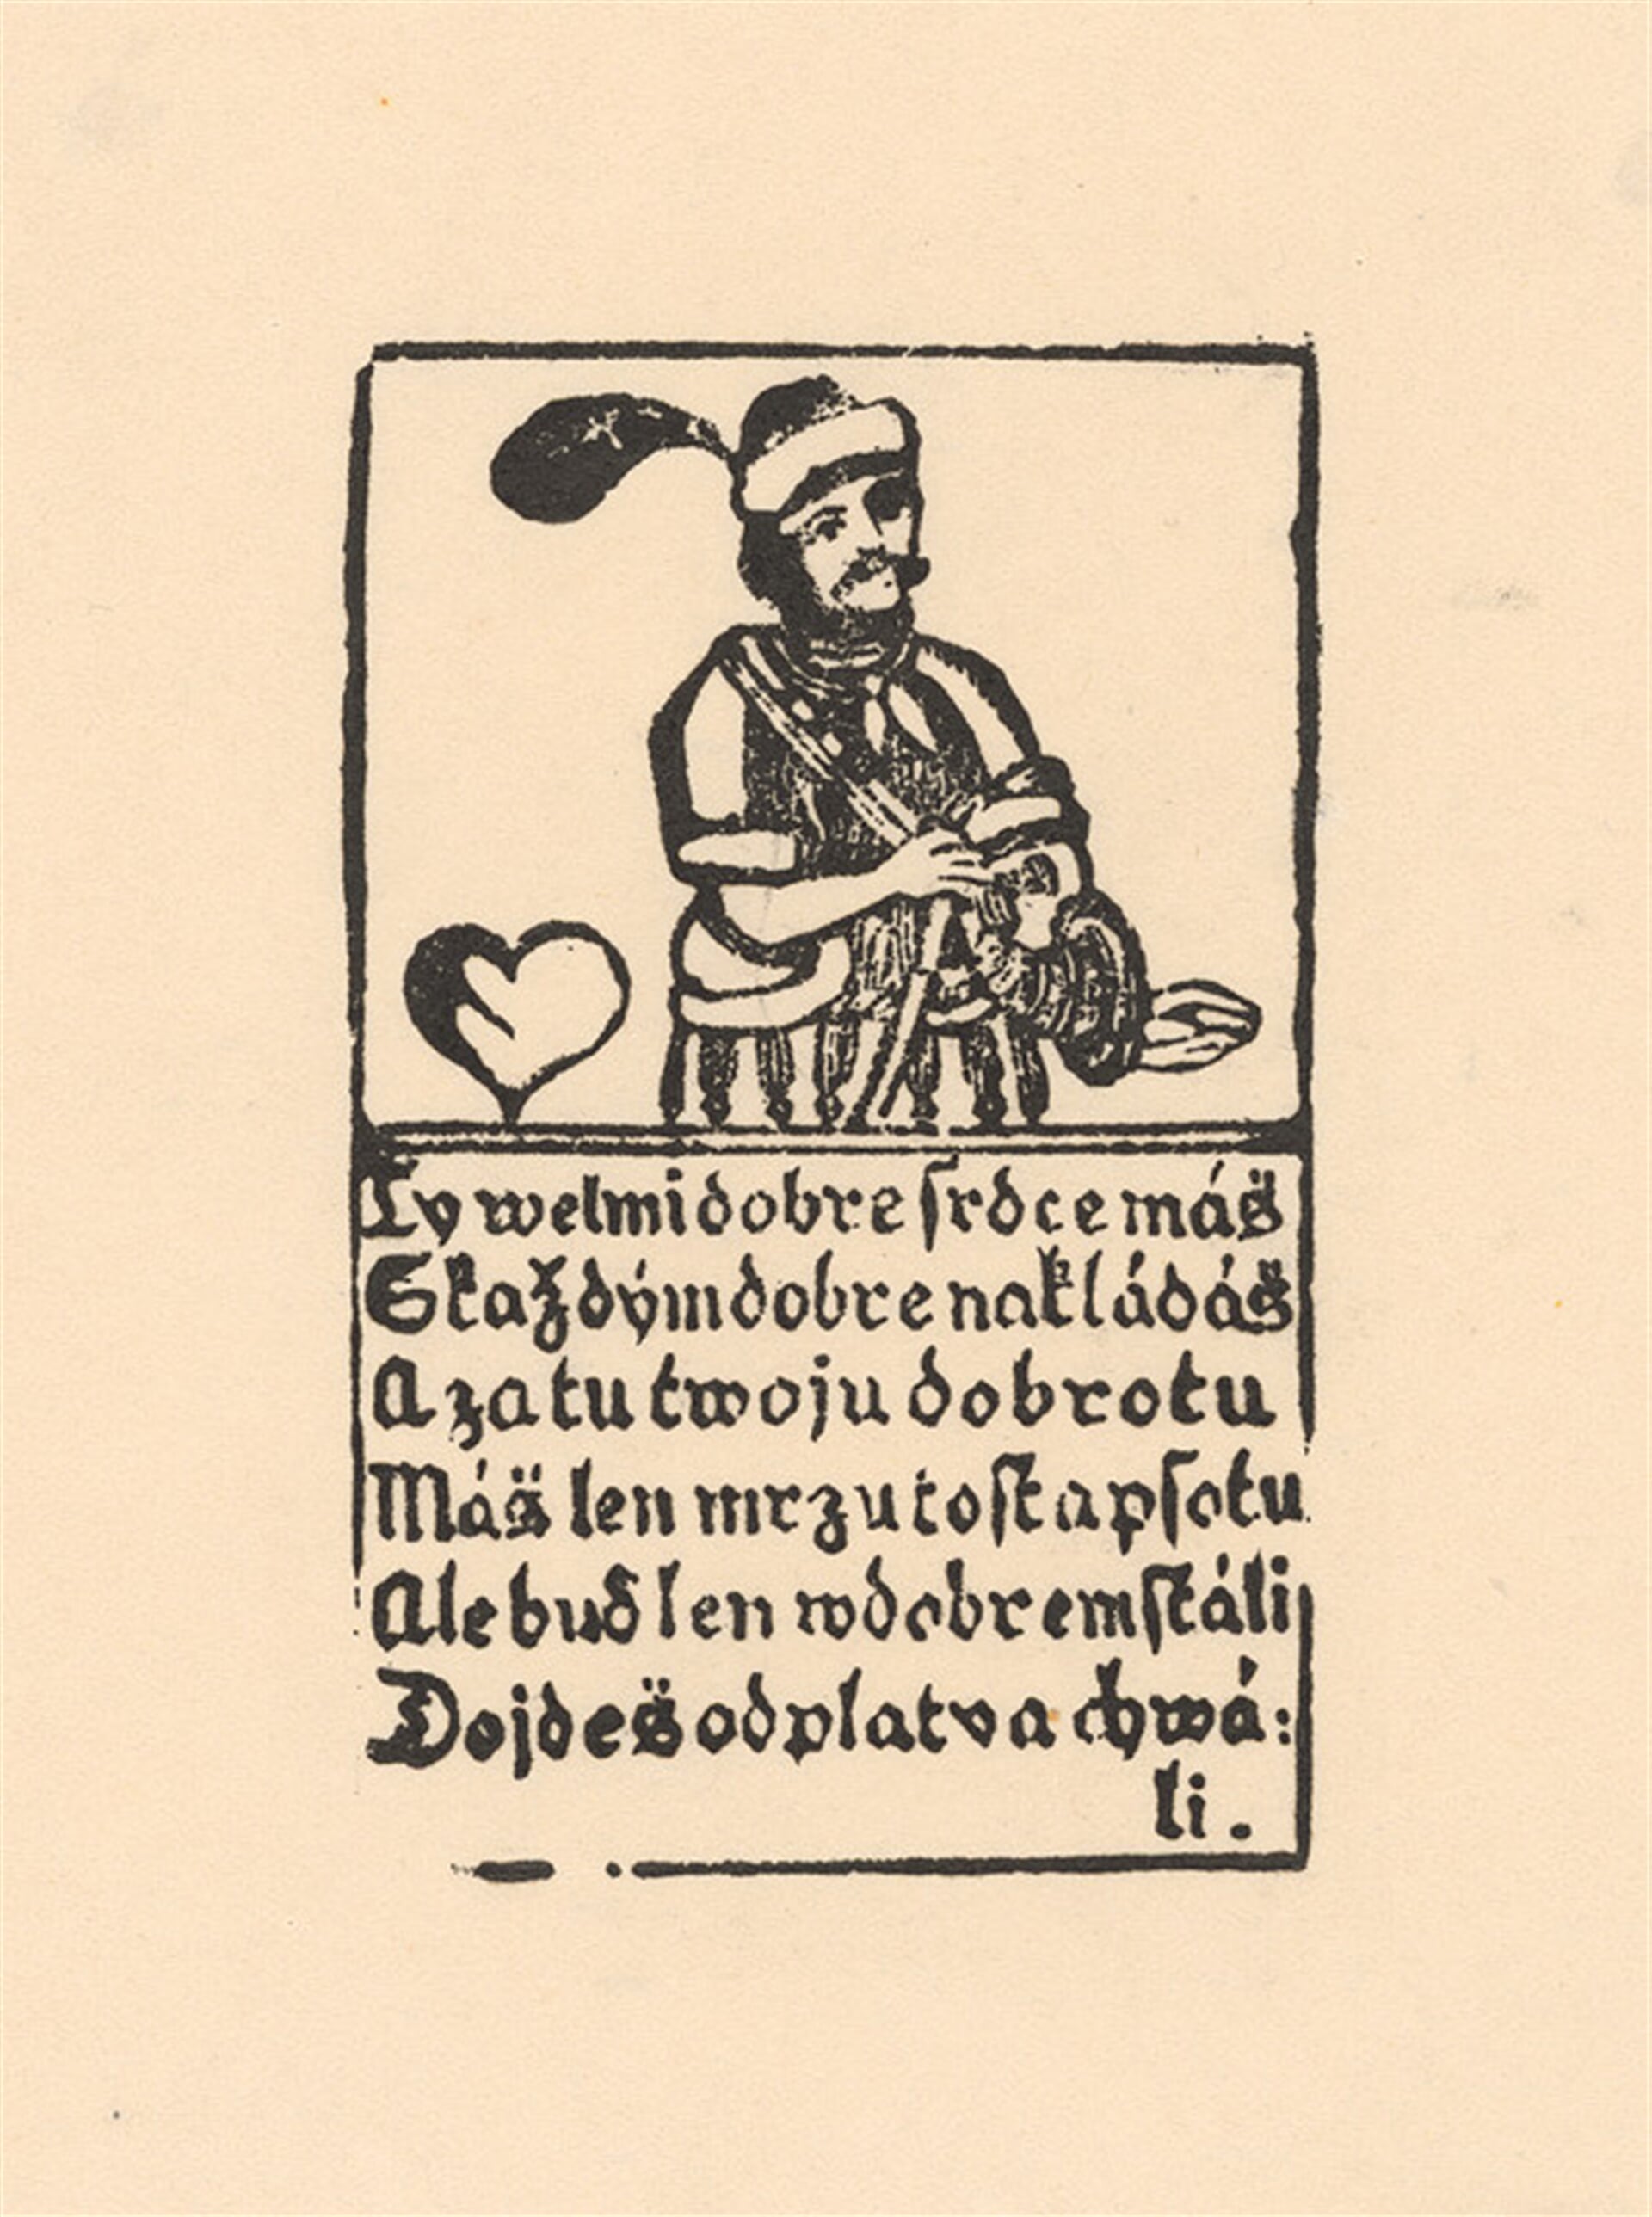 Ty welmi dobre srdce máš
S každým dobre nakládáš
A za tu twoju dobrotu
Máš len mrzutost a psotu
Ale buď len w dobrem stáli
Dojdeš odplaty a chwá:
li.